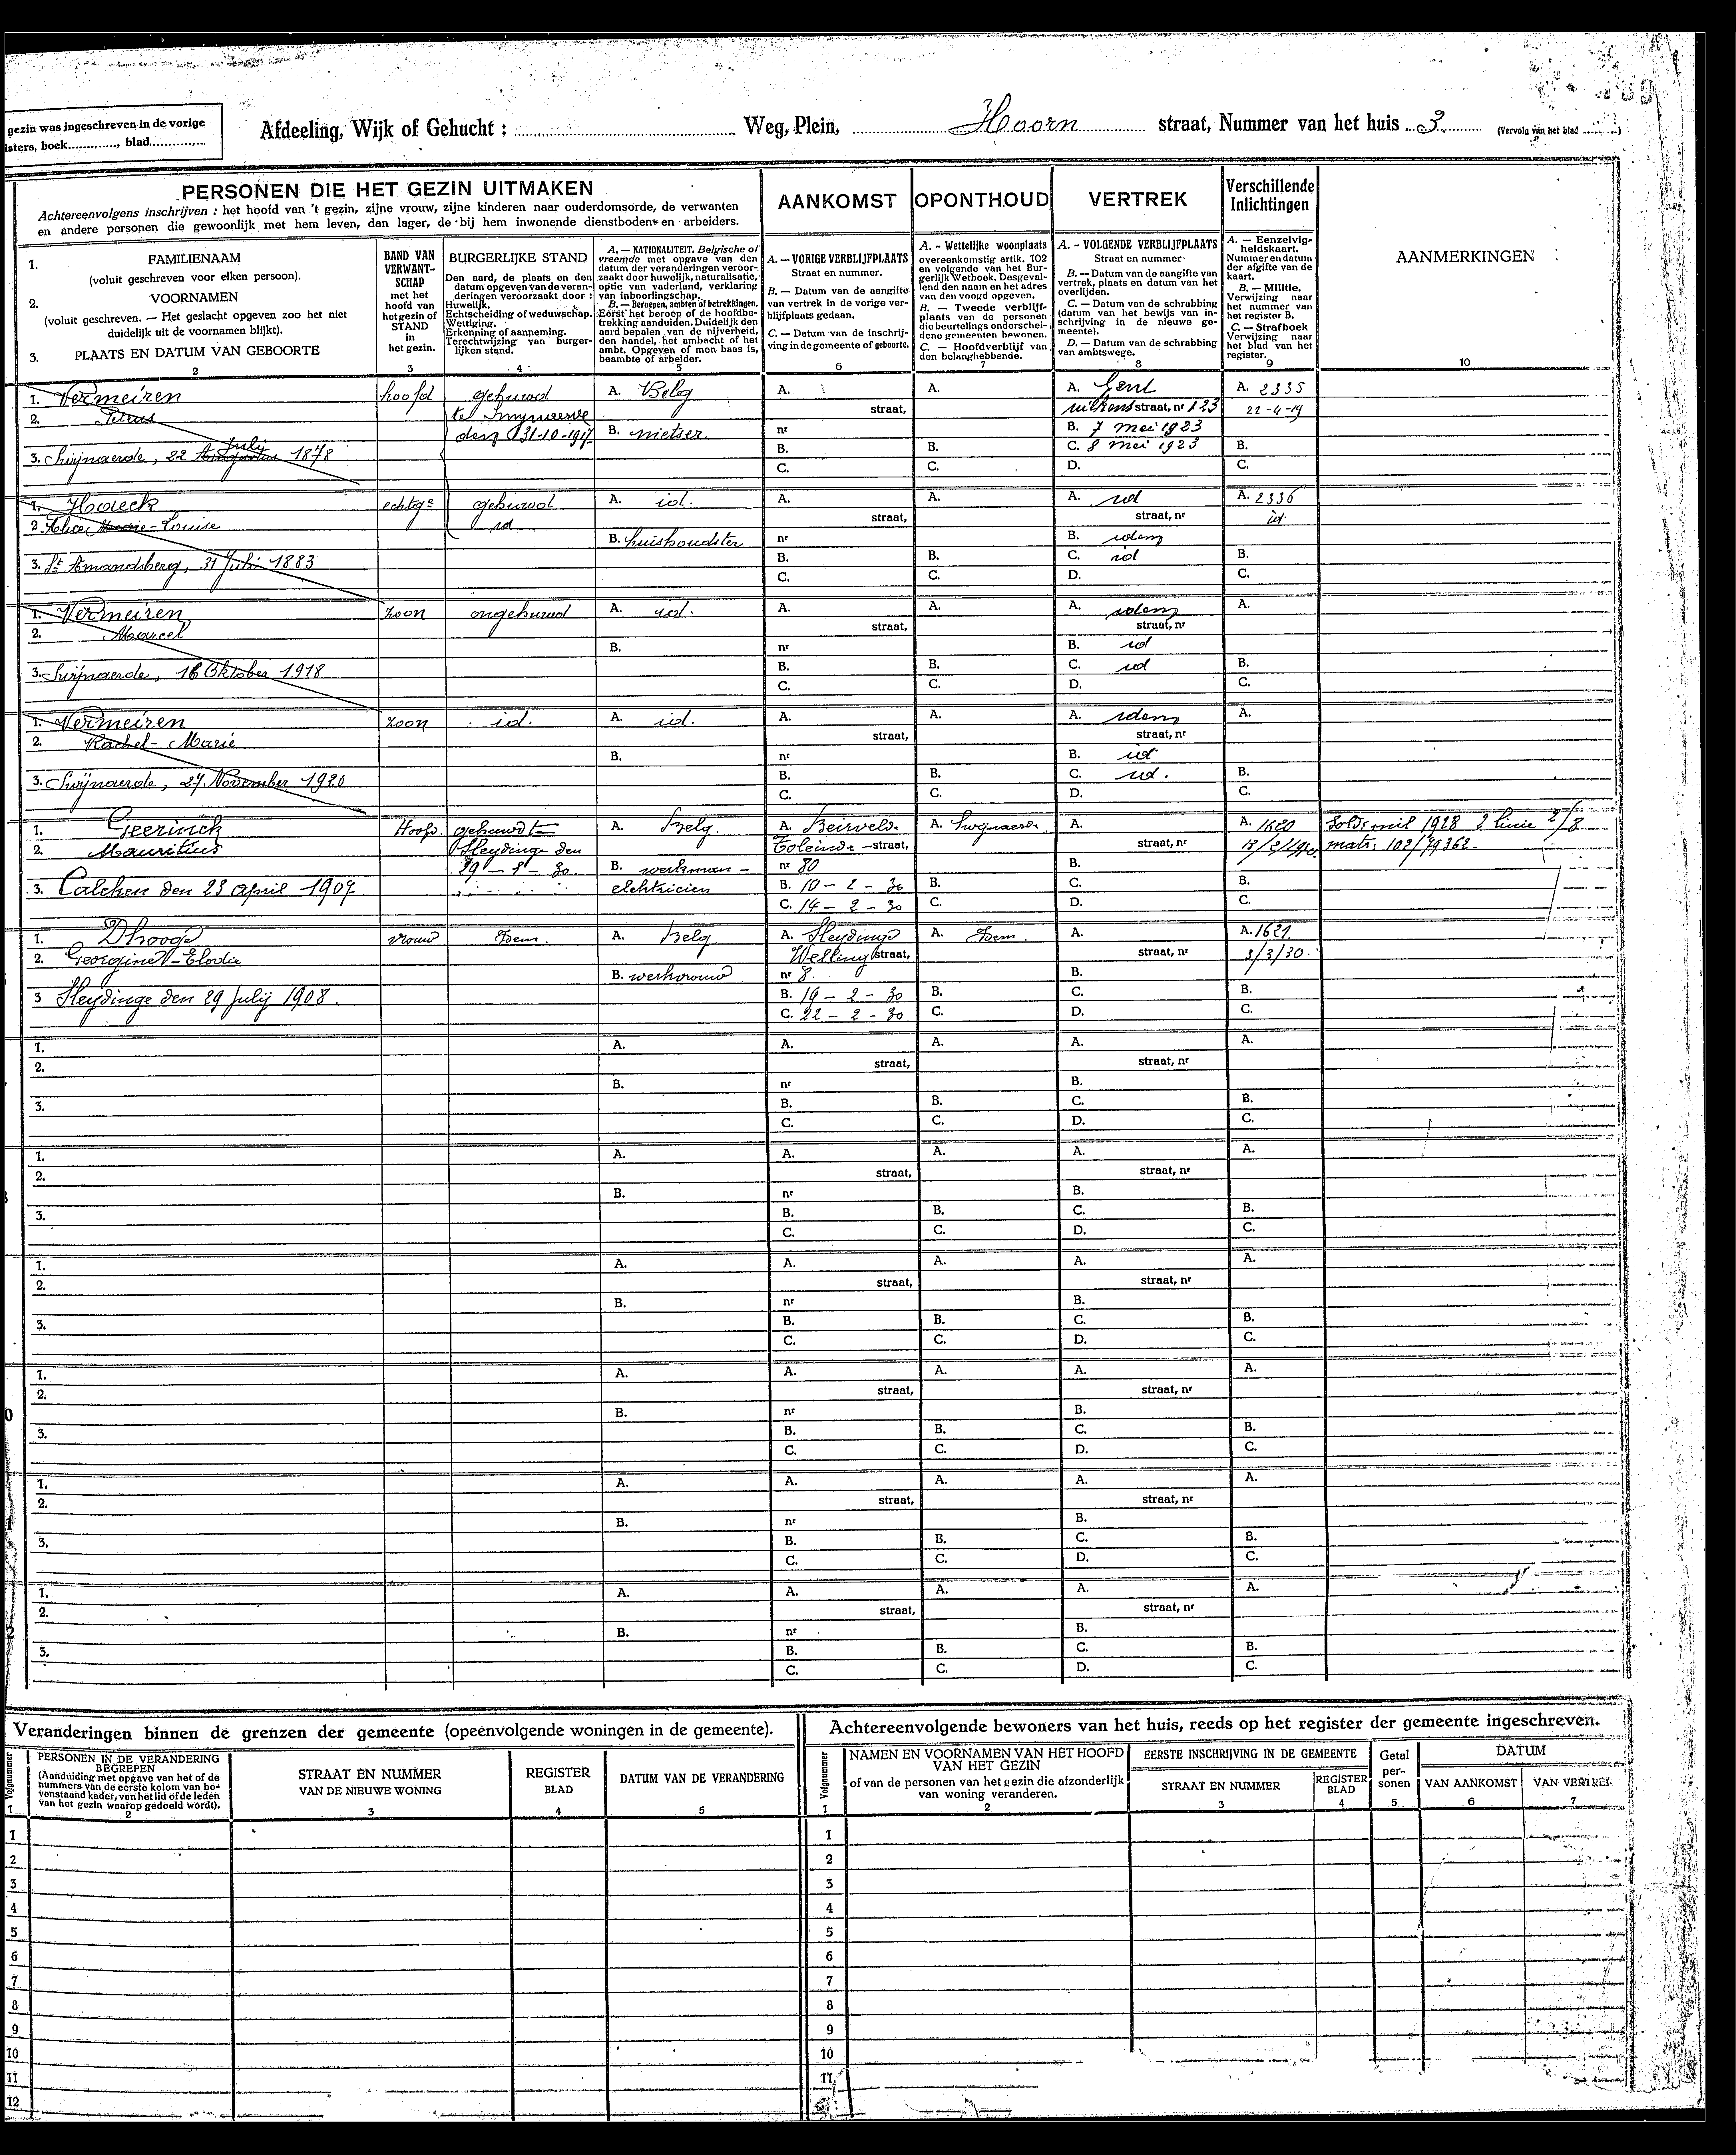 gezin was ingeschreven in de vorige
isters, boek............, blad..............
Afdeeling, Wijk of Gehucht : Weg, Plein, Hoorn straat, Nummer van het huis 3. (Vervolg van het blad )
PERSONEN DIE HET GEZIN UITMAKEN
Achtereenvolgens inschrijven : het hoofd van 't gezin, zijne vrouw, zijne kinderen naar ouderdomsorde, de verwanten
en andere personen die gewoonlijk met hem leven, dan lager, de bij hem inwonende dienstboden en arbeiders.
AANKOMST
OPONTHOUD
VERTREK
Verschillende
Inlichtingen
1. FAMILIENAAM
(voluit geschreven voor elken persoon).
2. VOORNAMEN
(voluit geschreven. — Het geslacht opgeven zoo het niet
duidelijk uit de voornamen blijkt).
3. PLAATS EN DATUM VAN GEBOORTE
2
BAND VAN
VERWANT-
SCHAP
met het
hoofd van
het gezin of
STAND
in
het gezin.
3
BURGERLIJKE STAND
Den aard, de plaats en den
datum opgeven van de veran-
deringen veroorzaakt door :
Huwelijk.
Echtscheiding of weduwschap.
Wettiging.
Erkenning of aanneming.
Terechtwijzing van burger-
lijken stand.
4
A. — NATIONALITEIT. Belgische of
vreemde met opgave van den
datum der veranderingen veroor-
zaakt door huwelijk, naturalisatie,
optie van vaderland, verklaring
van inboorlingschap.
B. — Beroepen, ambten of betrekkingen.
Eerst het beroep of de hoofdbe-
trekking aanduiden. Duidelijk den
aard bepalen van de nijverheid,
den handel, het ambacht of het
ambt. Opgeven of men baas is,
beambte of arbeider.
5
A. — VORIGE VERBLIJFPLAATS
Straat en nummer.
B. — Datum van de aangifte
van vertrek in de vorige ver-
blijfplaats gedaan.
C. — Datum van de inschrij-
ving in de gemeente of geboorte.
6
A. - Wettelijke woonplaats
overeenkomstig artik. 102
en volgende van het Bur-
gerlijk Wetboek. Desgeval-
lend den naam en het adres
van den voogd opgeven.
B. — Tweede verblijf-
plaats van de personen
die beurtelings onderschei-
dene gemeenten bewonen.
C. — Hoofdverblijf van
den belanghebbende.
7
A. - VOLGENDE VERBLIJFPLAATS
Straat en nummer
B. — Datum van de aangifte van
vertrek, plaats en datum van het
overlijden.
C. — Datum van de schrabbing
(datum van het bewijs van in-
schrijving in de nieuwe ge-
meente).
D. — Datum van de schrabbing
van ambtswege.
8
A. — Eenzelvig-
heidskaart.
Nummer en datum
der afgifte van de
kaart.
B. — Militie.
Verwijzing naar
het nummer van
het register B.
C. — Strafboek
Verwijzing naar
het blad van het
register.
9
AANMERKINGEN
10
1. Vermeiren hoofd gehuwd A. Belg A. A. A. Gent A. 2335
2. Petrus te straat, straat, nr 123 22-4-19
den 31-10-1917 B. nietser nr B. 7 mei 1923
3. Swijnaerde, 22 Julij 1878 B. B. C. 8 mei 1923 B.
C. C. D. C.
1. echtge gehuwd A. id. A. A. A. id A. 2336
2. Alice Marie-Louise id straat, straat, nr id.
B. huishoudster nr B. idem
3. St Amandsberg, 31 Juli 1883 B. B. C. id B.
C. C. D. C.
1. Vermeiren zoon ongehuwd A. id. A. A. A. idem A.
2. Marcel straat, straat, nr
B. nr B. id
3. Swijnaerde, 16 Oktober 1918 B. B. C. id B.
C. C. D. C.
1. Vermeiren zoon id. A. id. A. A. A. idem A.
2. Rachel-Marie straat, straat, nr
B. nr B. id
3. Swijnaerde, 27 November 1920 B. B. C. id. B.
C. C. D. C.
1. Geerinck Hoofd. gehuwd te A. Belg. A. Beirvelde A. Swijnaerde A. A. 1620 Sold. mil 1928 2 linie 2/8
2. Mauritius Sleydinge den Toleinde straat, straat, nr matr. 102/79362.
29 - 1 - 30. B. werkman - nr 80 B.
3. Calcken den 23 april 1907 elektricien B. 10 - 2 - 30 B. C. B.
C. 14 - 2 - 30 C. D. C.
1. Dhooge vrouw Idem. A. Belg A. Sleydinge A. Idem. A. A. 1621.
2. Georgine-Elodie Welling straat, straat, nr 3/3/30.
B. werkvrouw nr 8. B.
3 Sleydinge den 29 July 1908. B. 19 - 2 - 30 B. C. B.
C. 22 - 2 - 30 C. D. C.
1. A. A. A. A. A.
2. straat, straat, nr
B. nr B.
3. B. B. C. B.
C. C. D. C.
1. A. A. A. A. A.
2. straat, straat, nr
B. nr B.
3. B. B. C. B.
C. C. D. C.
1. A. A. A. A. A.
2. straat, straat, nr
B. nr B.
3. B. B. C. B.
C. C. D. C.
1. A. A. A. A. A.
2. straat, straat, nr
B. nr B.
3. B. B. C. B.
C. C. D. C.
1. A. A. A. A. A.
2. straat, straat, nr
B. nr B.
3. B. B. C. B.
C. C. D. C.
1. A. A. A. A. A.
2. straat, straat, nr
B. nr B.
3. B. B. C. B.
C. C. D. C.
Veranderingen binnen de grenzen der gemeente (opeenvolgende woningen in de gemeente).
Volgnummer
1
PERSONEN IN DE VERANDERING
BEGREPEN
(Aanduiding met opgave van het of de
nummers van de eerste kolom van bo-
venstaand kader, van het lid of de leden
van het gezin waarop gedoeld wordt).
2
STRAAT EN NUMMER
VAN DE NIEUWE WONING
3
REGISTER
BLAD
4
DATUM VAN DE VERANDERING
5
1
2
3
4
5
6
7
8
9
10
11
12
Achtereenvolgende bewoners van het huis, reeds op het register der gemeente ingeschreven.
Volgnummer
1
NAMEN EN VOORNAMEN VAN HET HOOFD
VAN HET GEZIN
of van de personen van het gezin die afzonderlijk
van woning veranderen.
2
EERSTE INSCHRIJVING IN DE GEMEENTE
STRAAT EN NUMMER
3
REGISTER
BLAD
4
Getal
per-
sonen
5
DATUM
VAN AANKOMST
6
VAN VERTREK
7
1
2
3
4
5
6
7
8
9
10
11